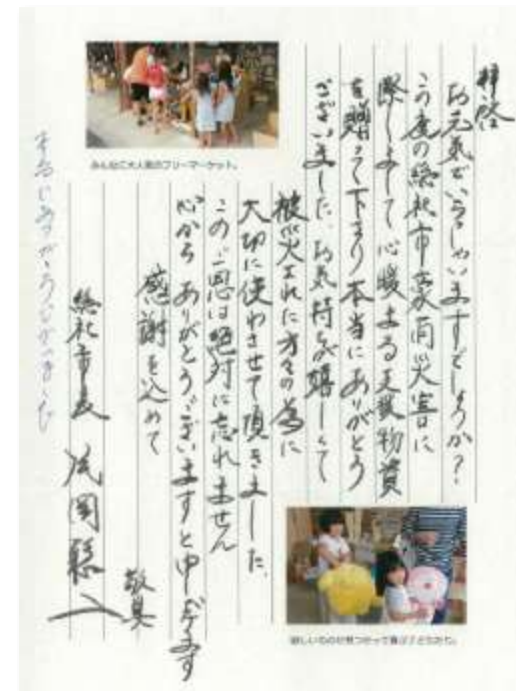 拝啓
お元気でいらっしゃいますでしょうか？
この度の総社市豪雨災害に
際しまして心暖まる支援物資
を贈って下さり本当にありがとう
ございました。お気持ちが嬉しくて
被災された方々の為に
大切に使わさせて頂きました。
このご恩は絶対に忘れません
心から ありがとうございますと申し上げます
感謝を込めて
敬具
総社市長 片岡聡一
みんなに大人気のフリーマーケット。
欲しいものが見つかって喜ぶ子どもたち。